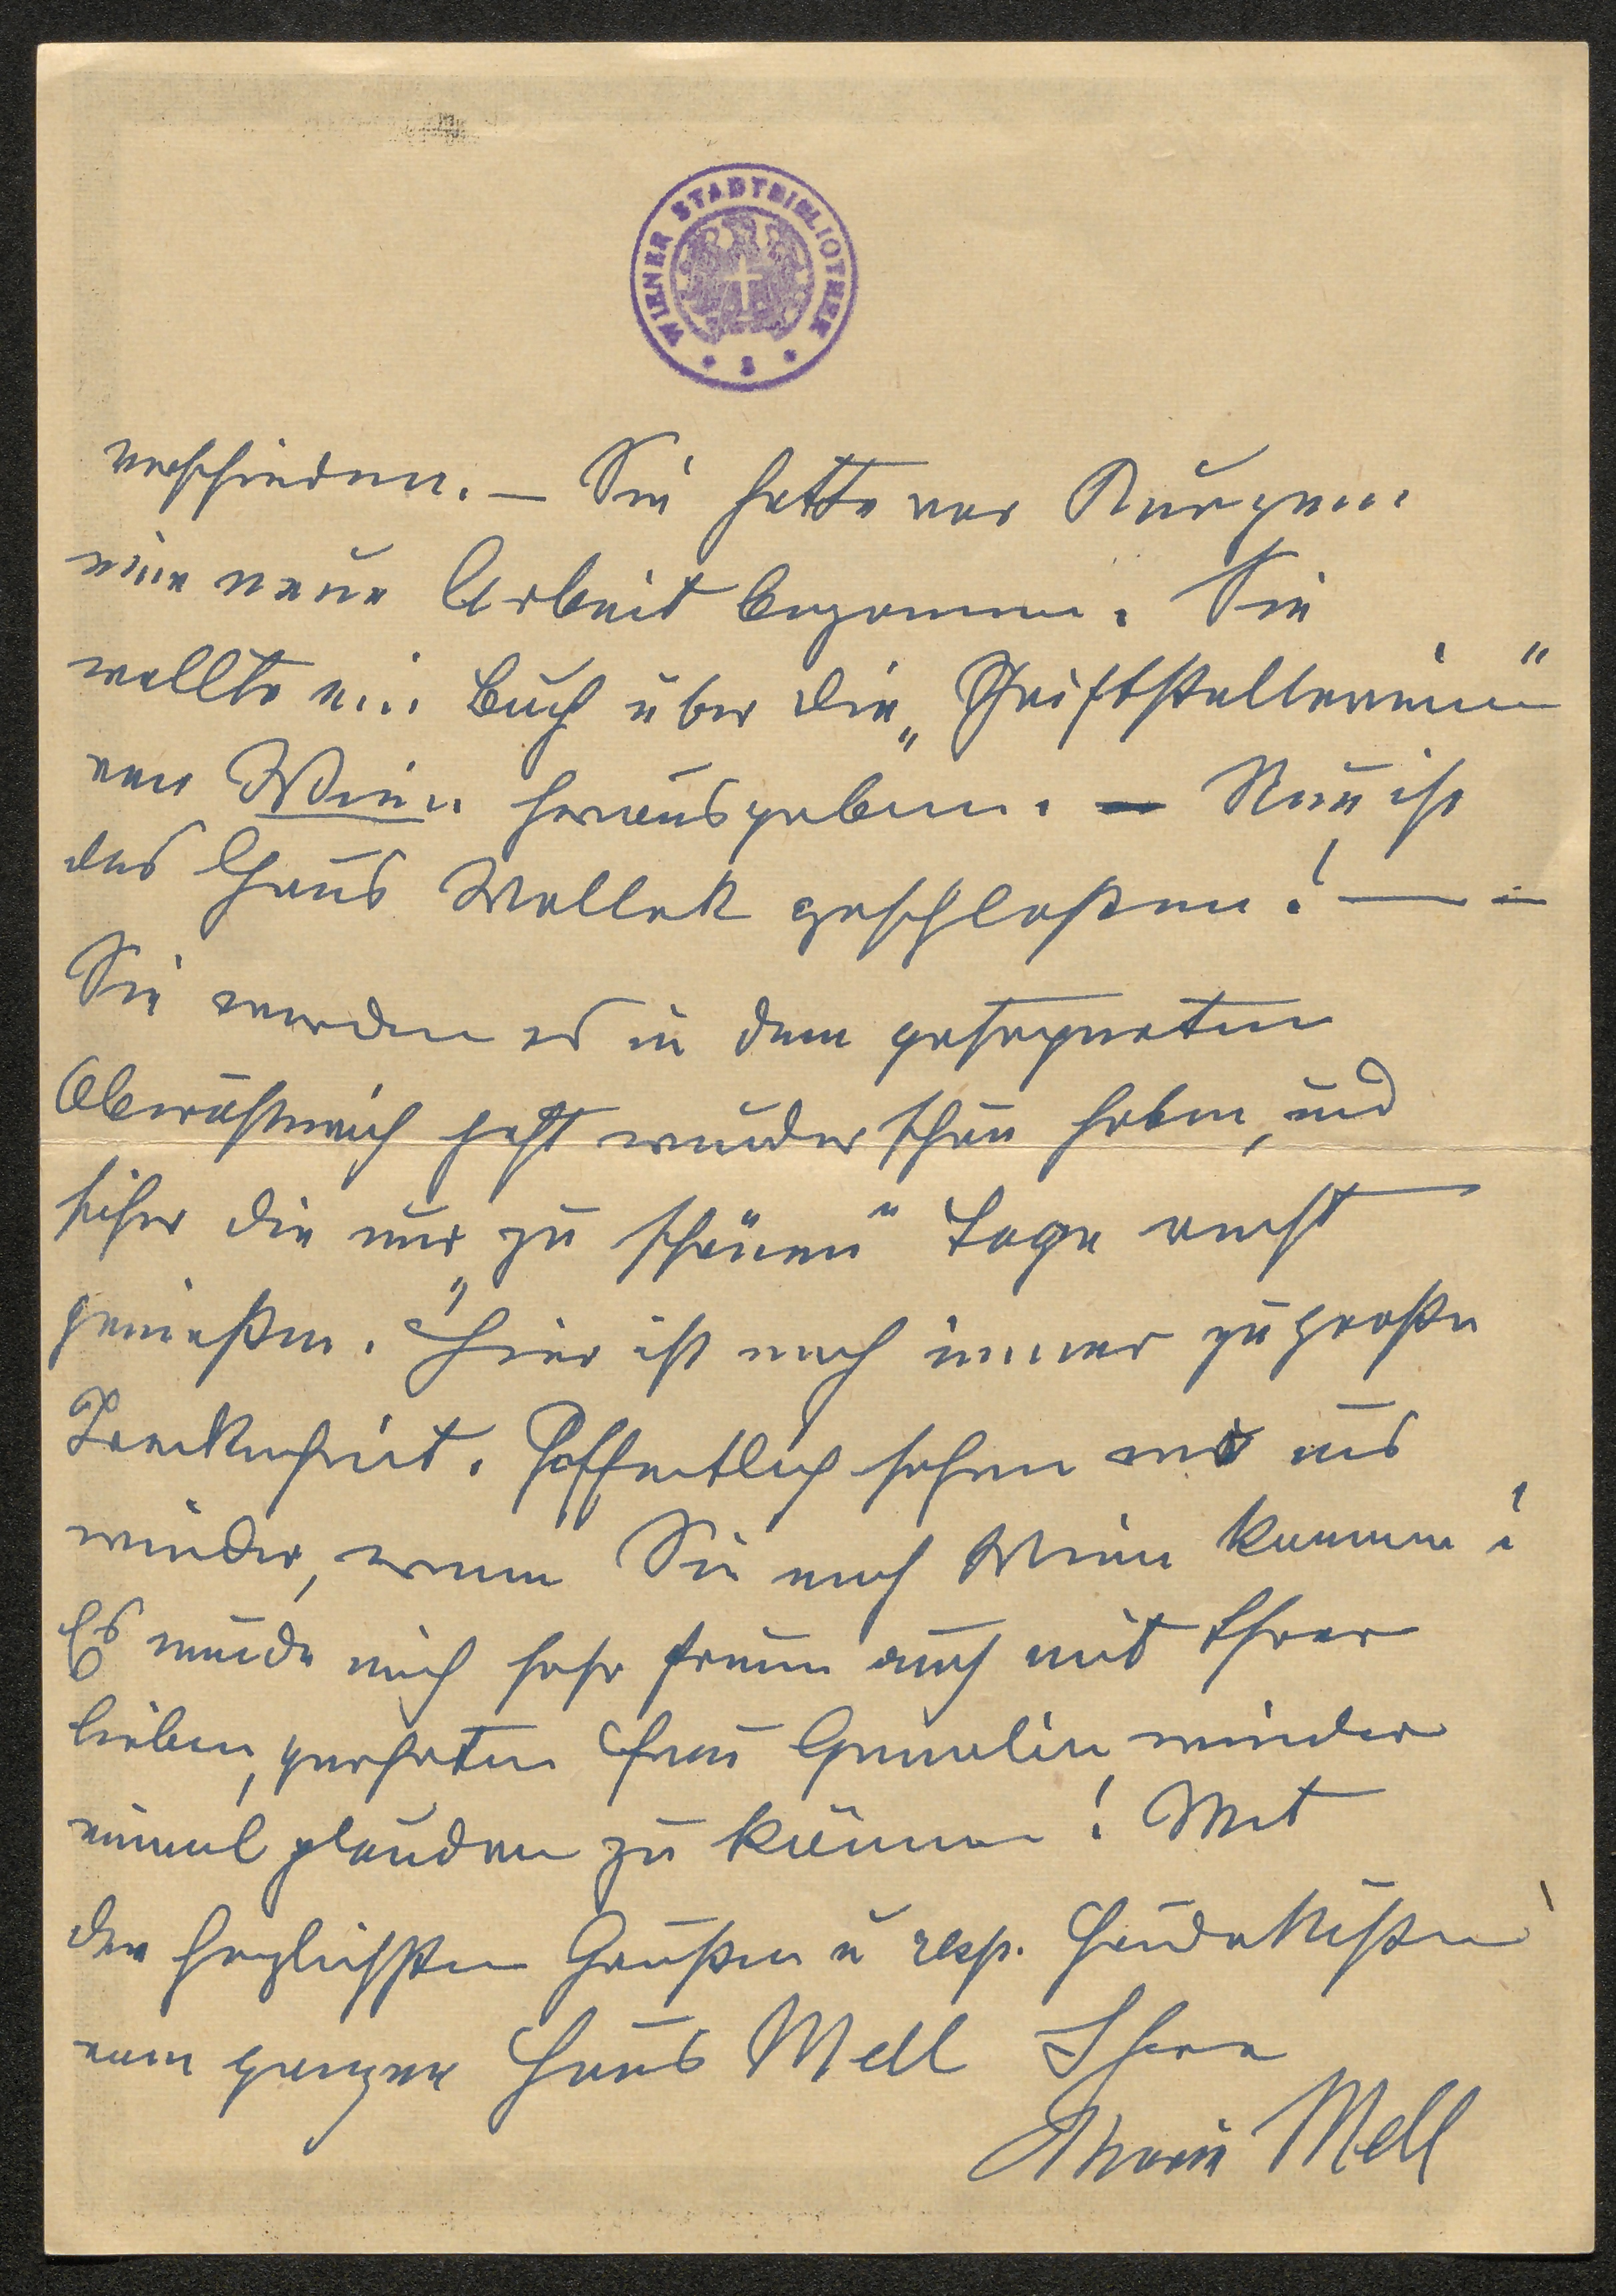 WIENER STADTBIBLIOTHEK
verschieden. — Sie hatte vor Kurzem
eine neue Arbeit begonnen. Sie
wollte ein Buch über die „Schriftstellerinnen"
von Wien herausgeben. — Nun ist
das Haus Wollek geschlossen! — —
Sie werden es in dem gesegneten
Oberösterreich jetzt wunderschön haben, und
sicher die nur „zu schönen" Tage recht
genießen. Hier ist noch immer zu große
Trockenheit. Hoffentlich sehen wir uns
wieder, wenn Sie nach Wien kommen!
Es würde mich sehr freuen auch mit Ihrer
lieben, verehrten Frau Gemalin, wieder
einmal plaudern zu können! Mit
den herzlichsten Grüßen u resp. Handküssen
vom ganzen Haus Mell Ihre
Marie Mell